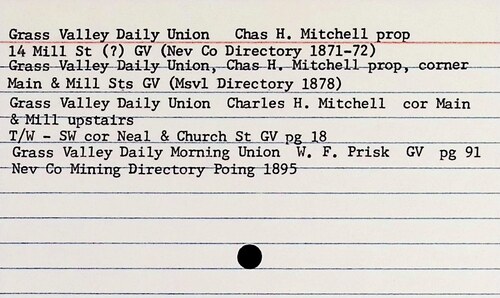 Grass Valley Daily Union   Chas H. Mitchell prop
14 Mill St (?) GV (Nev Co Directory 1871-72)
Grass Valley Daily Union, Chas H. Mitchell prop, corner
Main & Mill Sts GV (Msvl Directory 1878)
Grass Valley Daily Union  Charles H. Mitchell  cor Main
& Mill upstairs
T/W - SW cor Neal & Church St GV pg 18
Grass Valley Daily Morning Union  W. F. Prisk  GV  pg 91
Nev Co Mining Directory Poing 1895